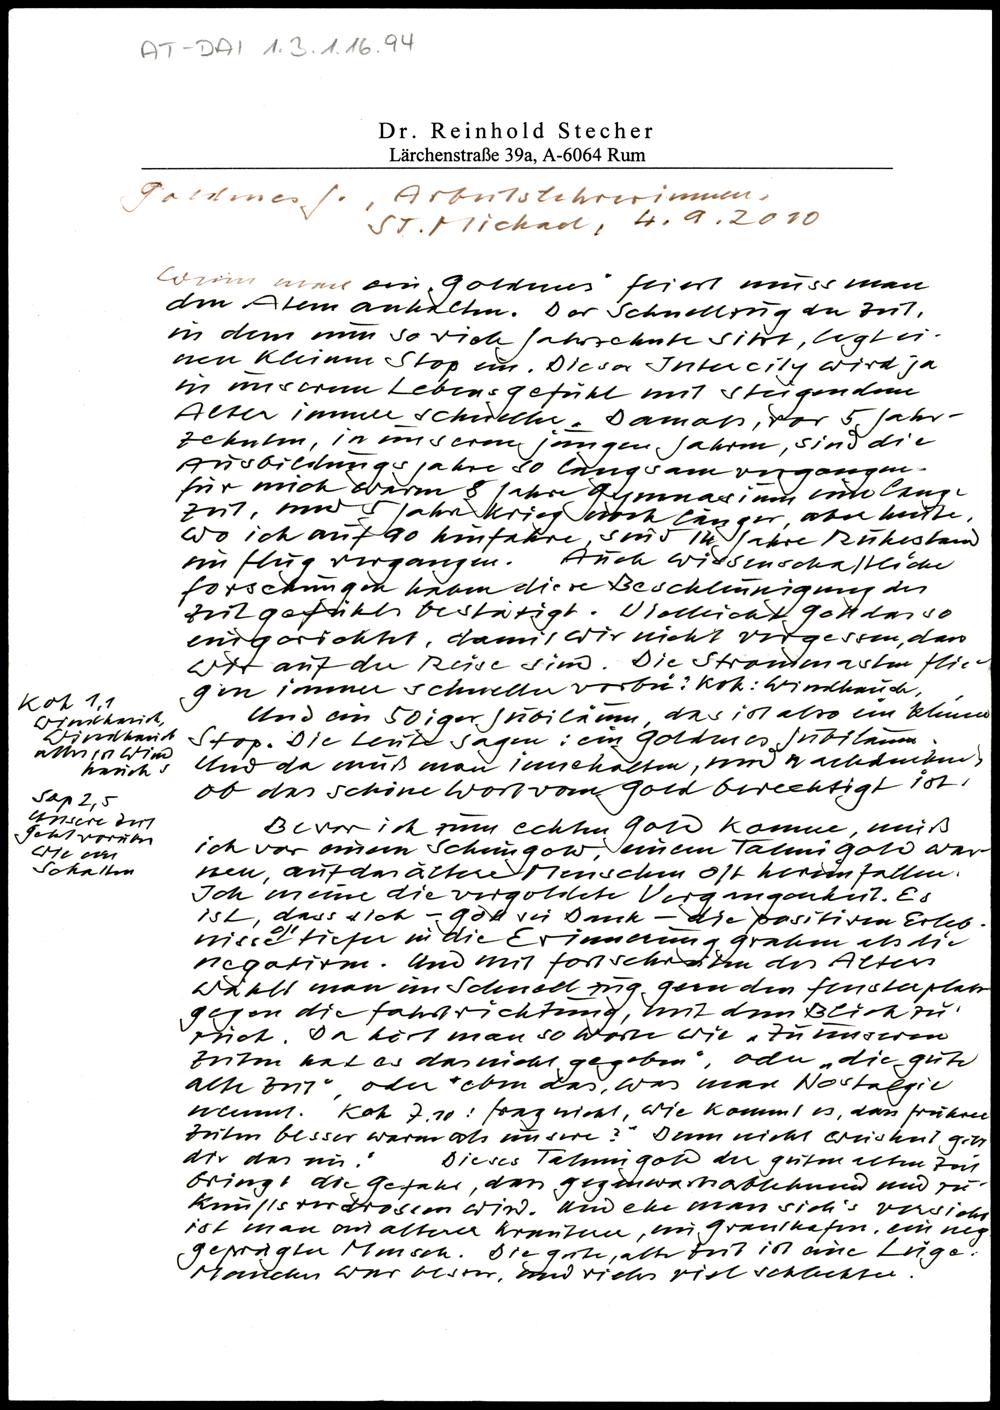 AT-DAI 1.3.1.16.94
Dr. Reinhold Stecher
Lärchenstraße 39a, A-6064 Rum
Goldenes J., Arbeitslehrerinnen,
St. Michael, 4.9.2010
Wenn man ein „Goldenes" feiert muss man
den Atem anhalten. Der Schnellzug der Zeit,
in dem man so viele Jahrzehnte sitzt, legt ei-
nen kleinen Stop ein. Dieser Intercity wird ja
in unserem Lebensgefühl mit steigendem
Alter immer schneller. Damals, vor 5 Jahr-
zehnten, in unseren jungen Jahren, sind die
Ausbildungsjahre so langsam vergangen.
für mich waren 8 Jahre Gymnasium eine lange
Zeit, und 5 Jahre Krieg noch länger, aber heute,
wo ich auf 90 hinfahre, sind 14 Jahre Ruhestand
im flug vergangen. Auch wissenschaftliche
forschungen haben diese Beschleunigung des
Zeitgefühls bestätigt. Vielleicht Gott das so
eingerichtet, damit wir nicht vergessen, dass
wir auf der Reise sind. Die Strommasten flie-
gen immer schneller vorbei: Koh: Windhauch,
Und ein 50iger Jubiläum, das ist also ein kleiner
Stop. Die Leute sagen: ein Goldenes Jubiläum.
Und da muß man innehalten, und nachdenken,
ob das schöne Wort vom Gold berechtigt ist.
Koh 1,1
Windhauch,
Windhauch
alles ist Wind
hauch
Sap 2,5
Unsere Zeit
geht vorüber
wie ein
Schatten
Bevor ich zum echten Gold komme, muß
ich vor einem Scheingold, einem Talmigold war-
nen, auf das ältere Menschen oft hereinfallen.
Ich meine die vergoldete Vergangenheit. Es
ist, dass sich – Gott sei Dank – die positiven Erleb-
nisse oft tiefer in die Erinnerung graben als die
negativen. Und mit fortschreiten des Alters
wählt man im Schnellzug gern den fensterplatz
gegen die fahrtrichtung, mit dem Blick zu-
rück. Da hört man so Worte wie „Zu unseren
Zeiten hat es das nicht gegeben", oder „die gute
alte Zeit", oder eben das, was man Nostalgie
nennt. Koh 7.10: frag nicht, wie kommt es, dass frühere
Zeiten besser waren als unsere?" Denn nicht Weisheit gibt
dir das ein." Dieses Talmigold der guten alten Zeit
bringt die Gefahr, dass gegenwartsablehnend und zu-
kunftsverdrossen wird. Und ehe man sich's versieht
ist man ein älterer Granthafen, ein neg
geprägter Mensch. Die gute, alte Zeit ist eine Lüge.
Manches war besser, und vieles viel schlechter.